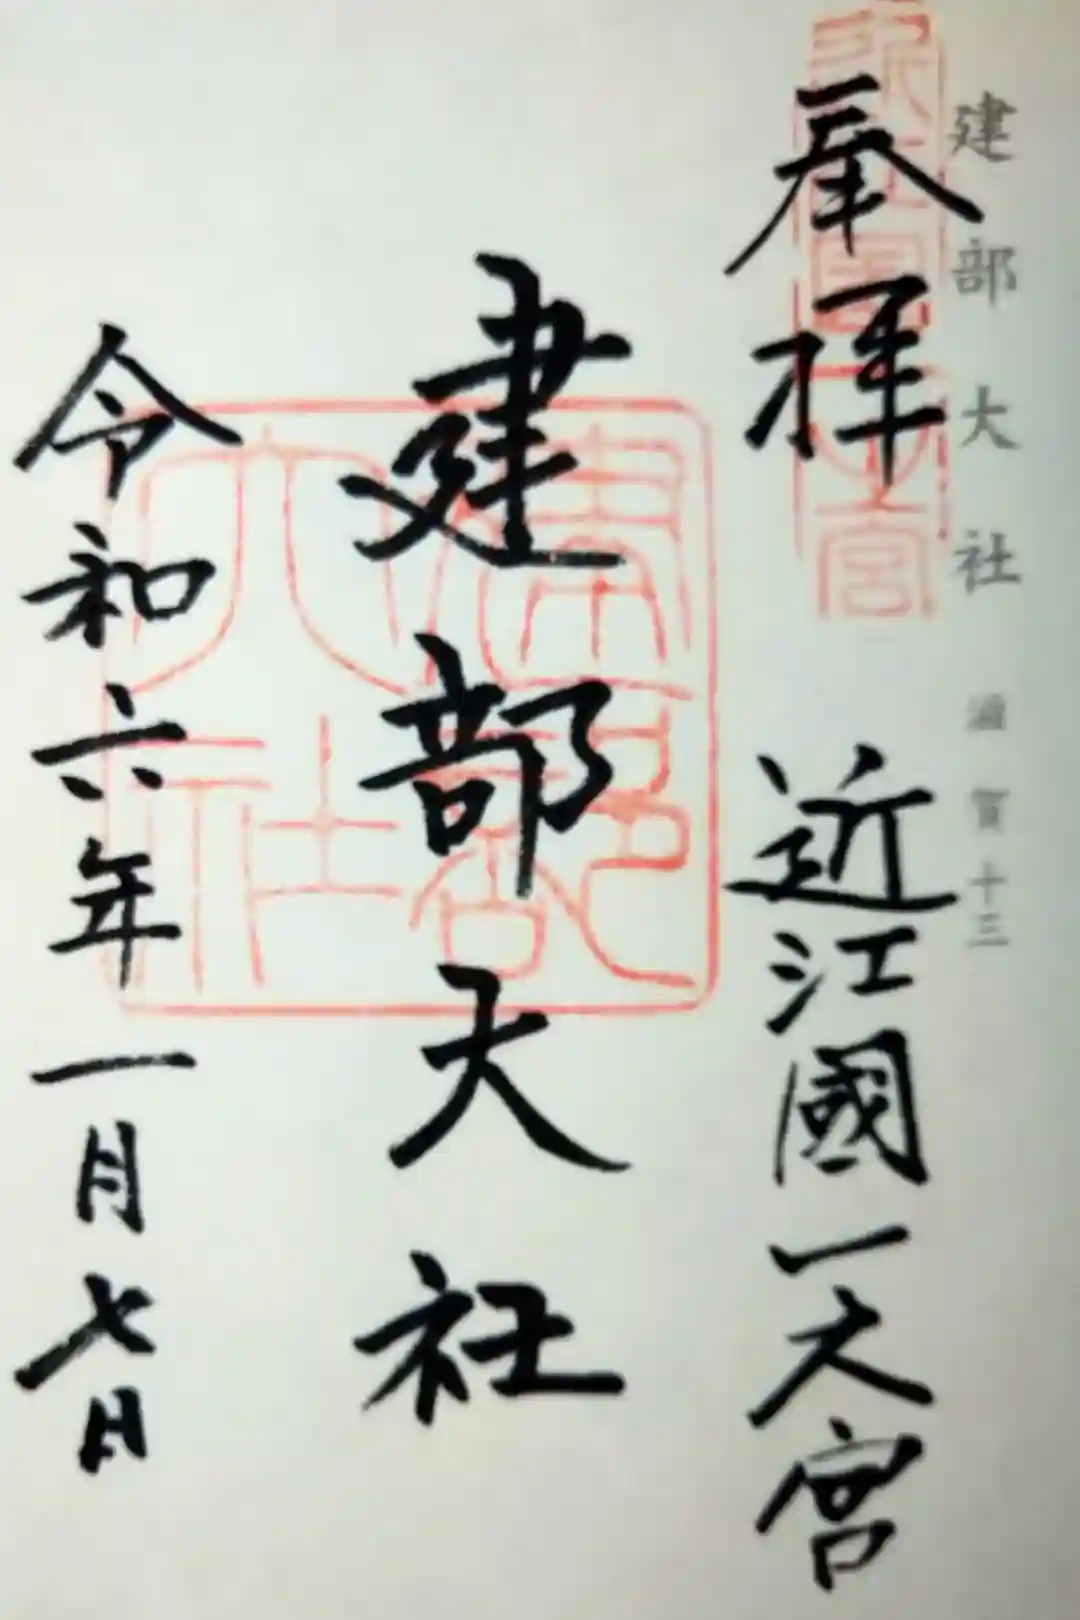 建部大社 滋賀十三
奉拝 近江國一大宮
建部大社
令和六年一月七日
建部大社